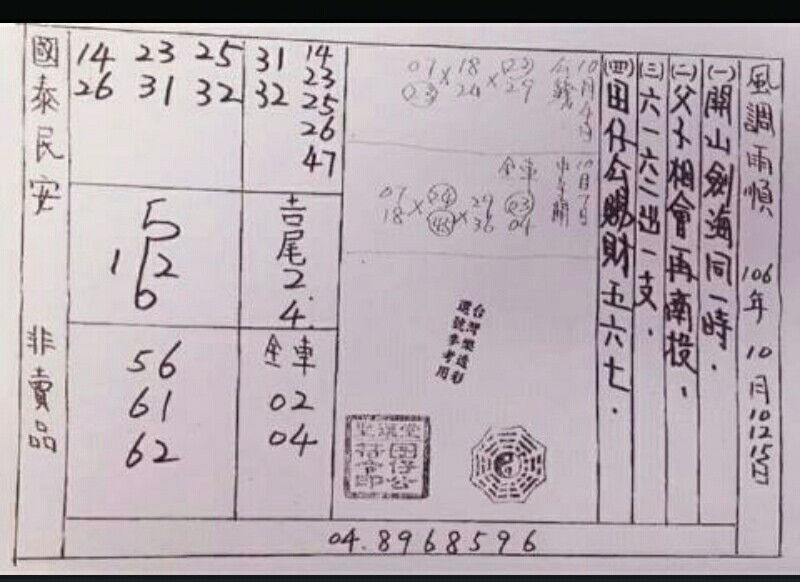 風調雨順 106年10月10 12 15日
(一)開山劍海同一時．
(二)父子相會再南投．
(三)六一六二出一支．
(四)田仔公賜財五六七．
10月4日
07 × 18 × 23
23 24 29
10月7日
全車
07 × 24 × 29 03
18 45 36 04
台灣樂透彩
選號參考用
田仔公
符令印
31 14
32 23
25
26
47
吉尾2.4.
全車
02
04
14 23 25
26 31 32
5
1 2
6
56
61
62
國泰民安 非賣品
04.8968596